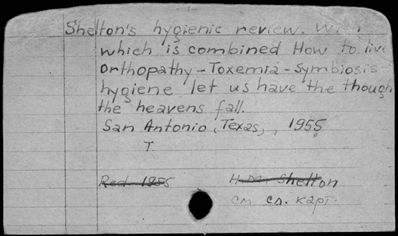 Shelton's hygienic review. With
which is combined How to live
Orthopathy - Toxemia - Symbiosis
hygiene let us have the though
the heavens fall.
San Antonio, Texas, , 1955
T
Red 1955 Shelton
см сл. карт.